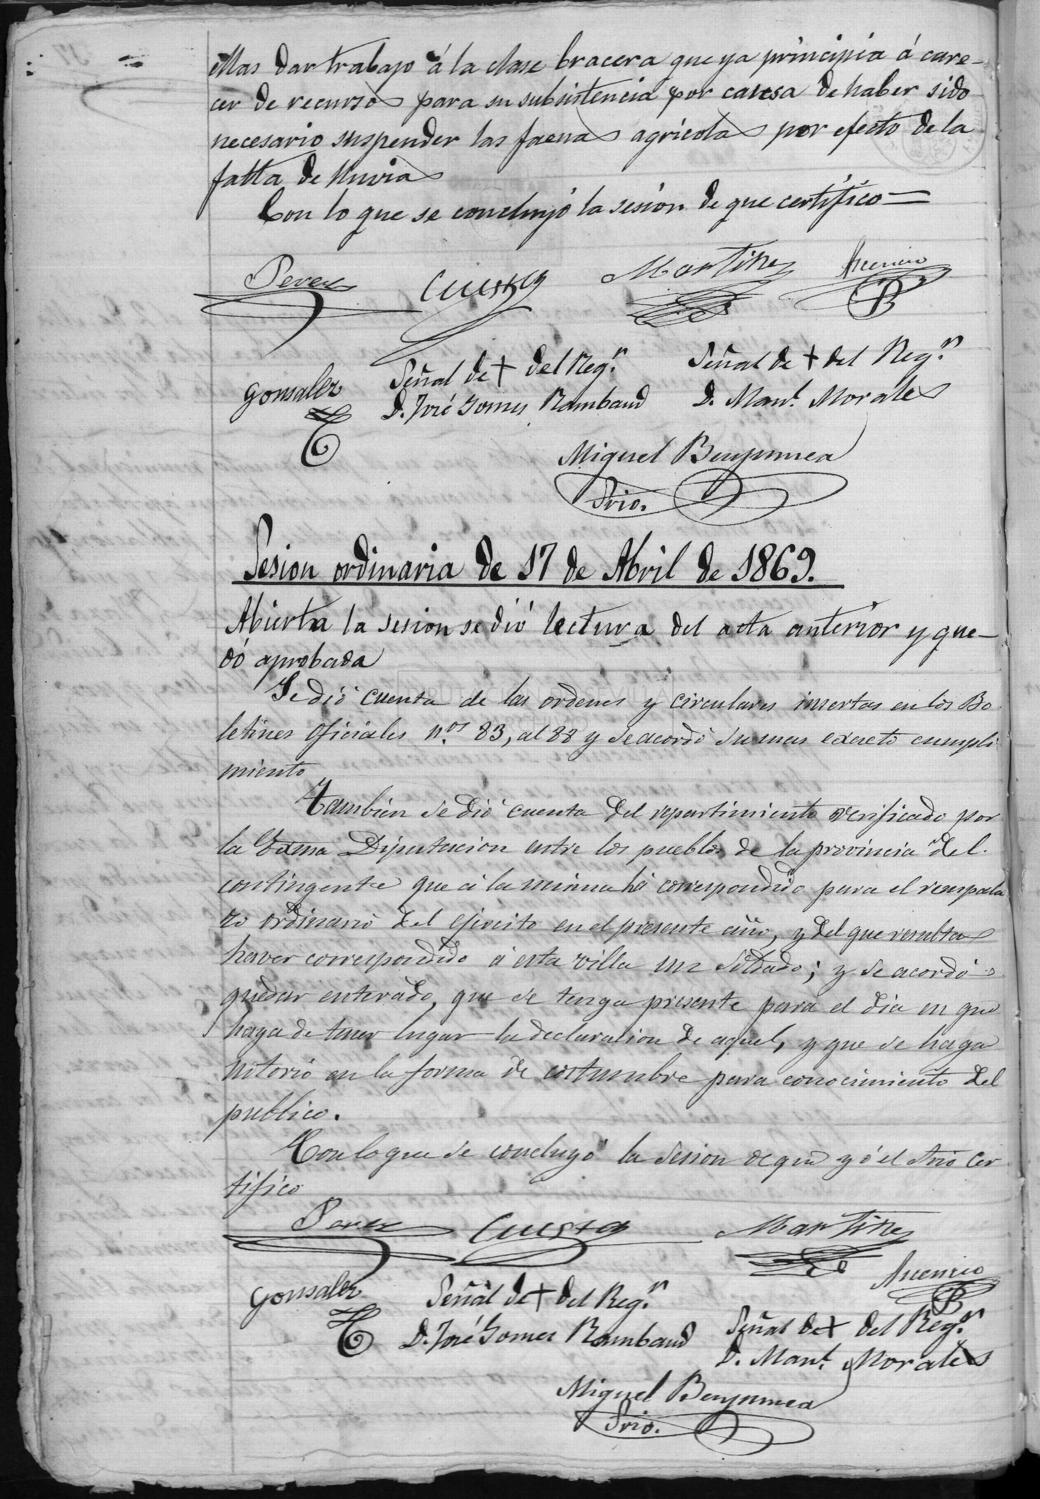 Mas dar trabajo á la clase bracera que ya principia á care-
cer de recursos para su subsistencia por causa de haber sido
necesario suspender las faenas agricolas por efecto de la
falta de lluvias
Con lo que se concluyó la sesión de que certifico=
Perez Cuesta Martinez Asencio
Gonsalez Señal de + del Reg.or Señal de + del Reg.or
D. José Gomes Rambaud D. Man.l Morales
Miguel Benjumea
Srio.
Sesion ordinaria de 17 de Abril de 1869.
Abierta la sesion se dió lectura del acta anterior y que-
dó aprobada
Se dió cuenta de las ordenes y circulares insertas en los Bo
letines Oficiales n.os 83, al 88 y se acordó su mas exacto cumpli
miento
Tambien se dió cuenta del repartimiento verificado por
la Exma Diputacion entre los pueblos de la provincia del
contingente que á la misma há correspondido para el reempla
zo ordinario del ejército en el presente año, y del que resulta
haver correspondido á esta villa un Soldado; y se acordó
quedar enterado, que se tenga presente para el dia en que
haya de tener lugar la declaracion de aquel, y que se haga
notorio en la forma de costumbre para conocimiento del
publico.
Con lo que se concluyó la sesion de que yó el Srio cer
tifico
Perez Cuesta Martinez
Asencio
Gonsalez Señal de + del Reg.or
D. José Gomes Rambaud Señal de + del Reg.or
D. Man.l Morales
Miguel Benjumea
Srio.